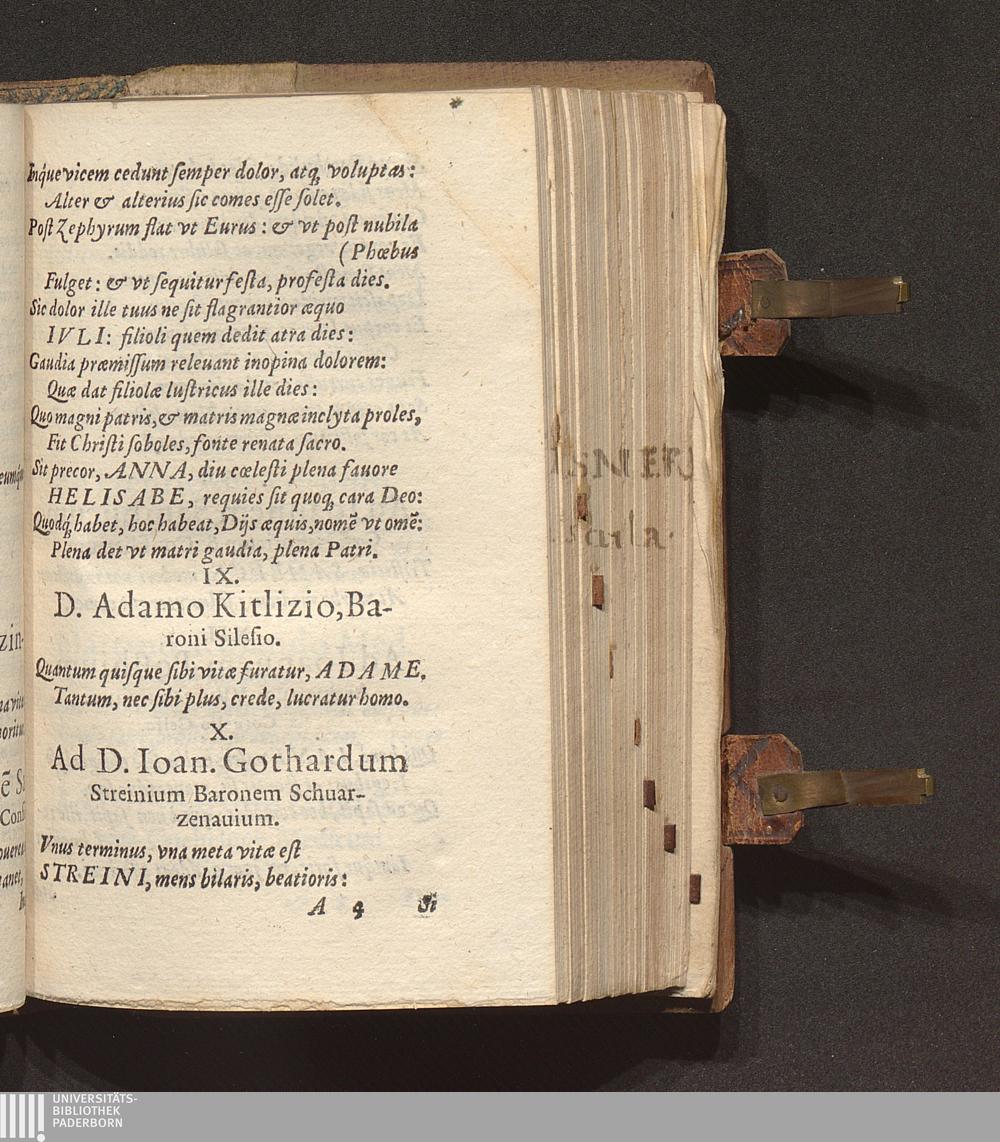 Inq́ue vicem cedunt ſemper dolor, atq; voluptas:
Alter & alterius ſic comes eſſe ſolet.
Poſt Zephyrum flat vt Eurus: & vt poſt nubila
(Phœbus
Fulget: & vt ſequitur feſta, profeſta dies.
Sic dolor ille tuus ne ſit flagrantior æquo
IVLI: filioli quem dedit atra dies:
Gaudia præmiſſum releuant inopina dolorem:
Quæ dat filiolæ luſtricus ille dies:
Quo magni patris, & matris magnæ inclyta proles,
Fit Chriſti ſoboles, fonte renata ſacro.
Sit precor, ANNA, diu cœleſti plena fauore
HELISABE, requies ſit quoq; cara Deo:
Quodq́; habet, hoc habeat, Dijs æquis, nomẽ vt omẽ:
Plena det vt matri gaudia, plena Patri.
IX.
D. Adamo Kitlizio, Ba-
roni Sileſio.
Quantum quiſque ſibi vitæ furatur, ADAME,
Tantum, nec ſibi plus, crede, lucratur homo.
X.
Ad D. Ioan. Gothardum
Streinium Baronem Schuar-
zenauium.
Vnus terminus, vna meta vitæ eſt
STREINI, mens hilaris, beatioris:
A 4 Si
UNIVERSITÄTS-
BIBLIOTHEK
PADERBORN